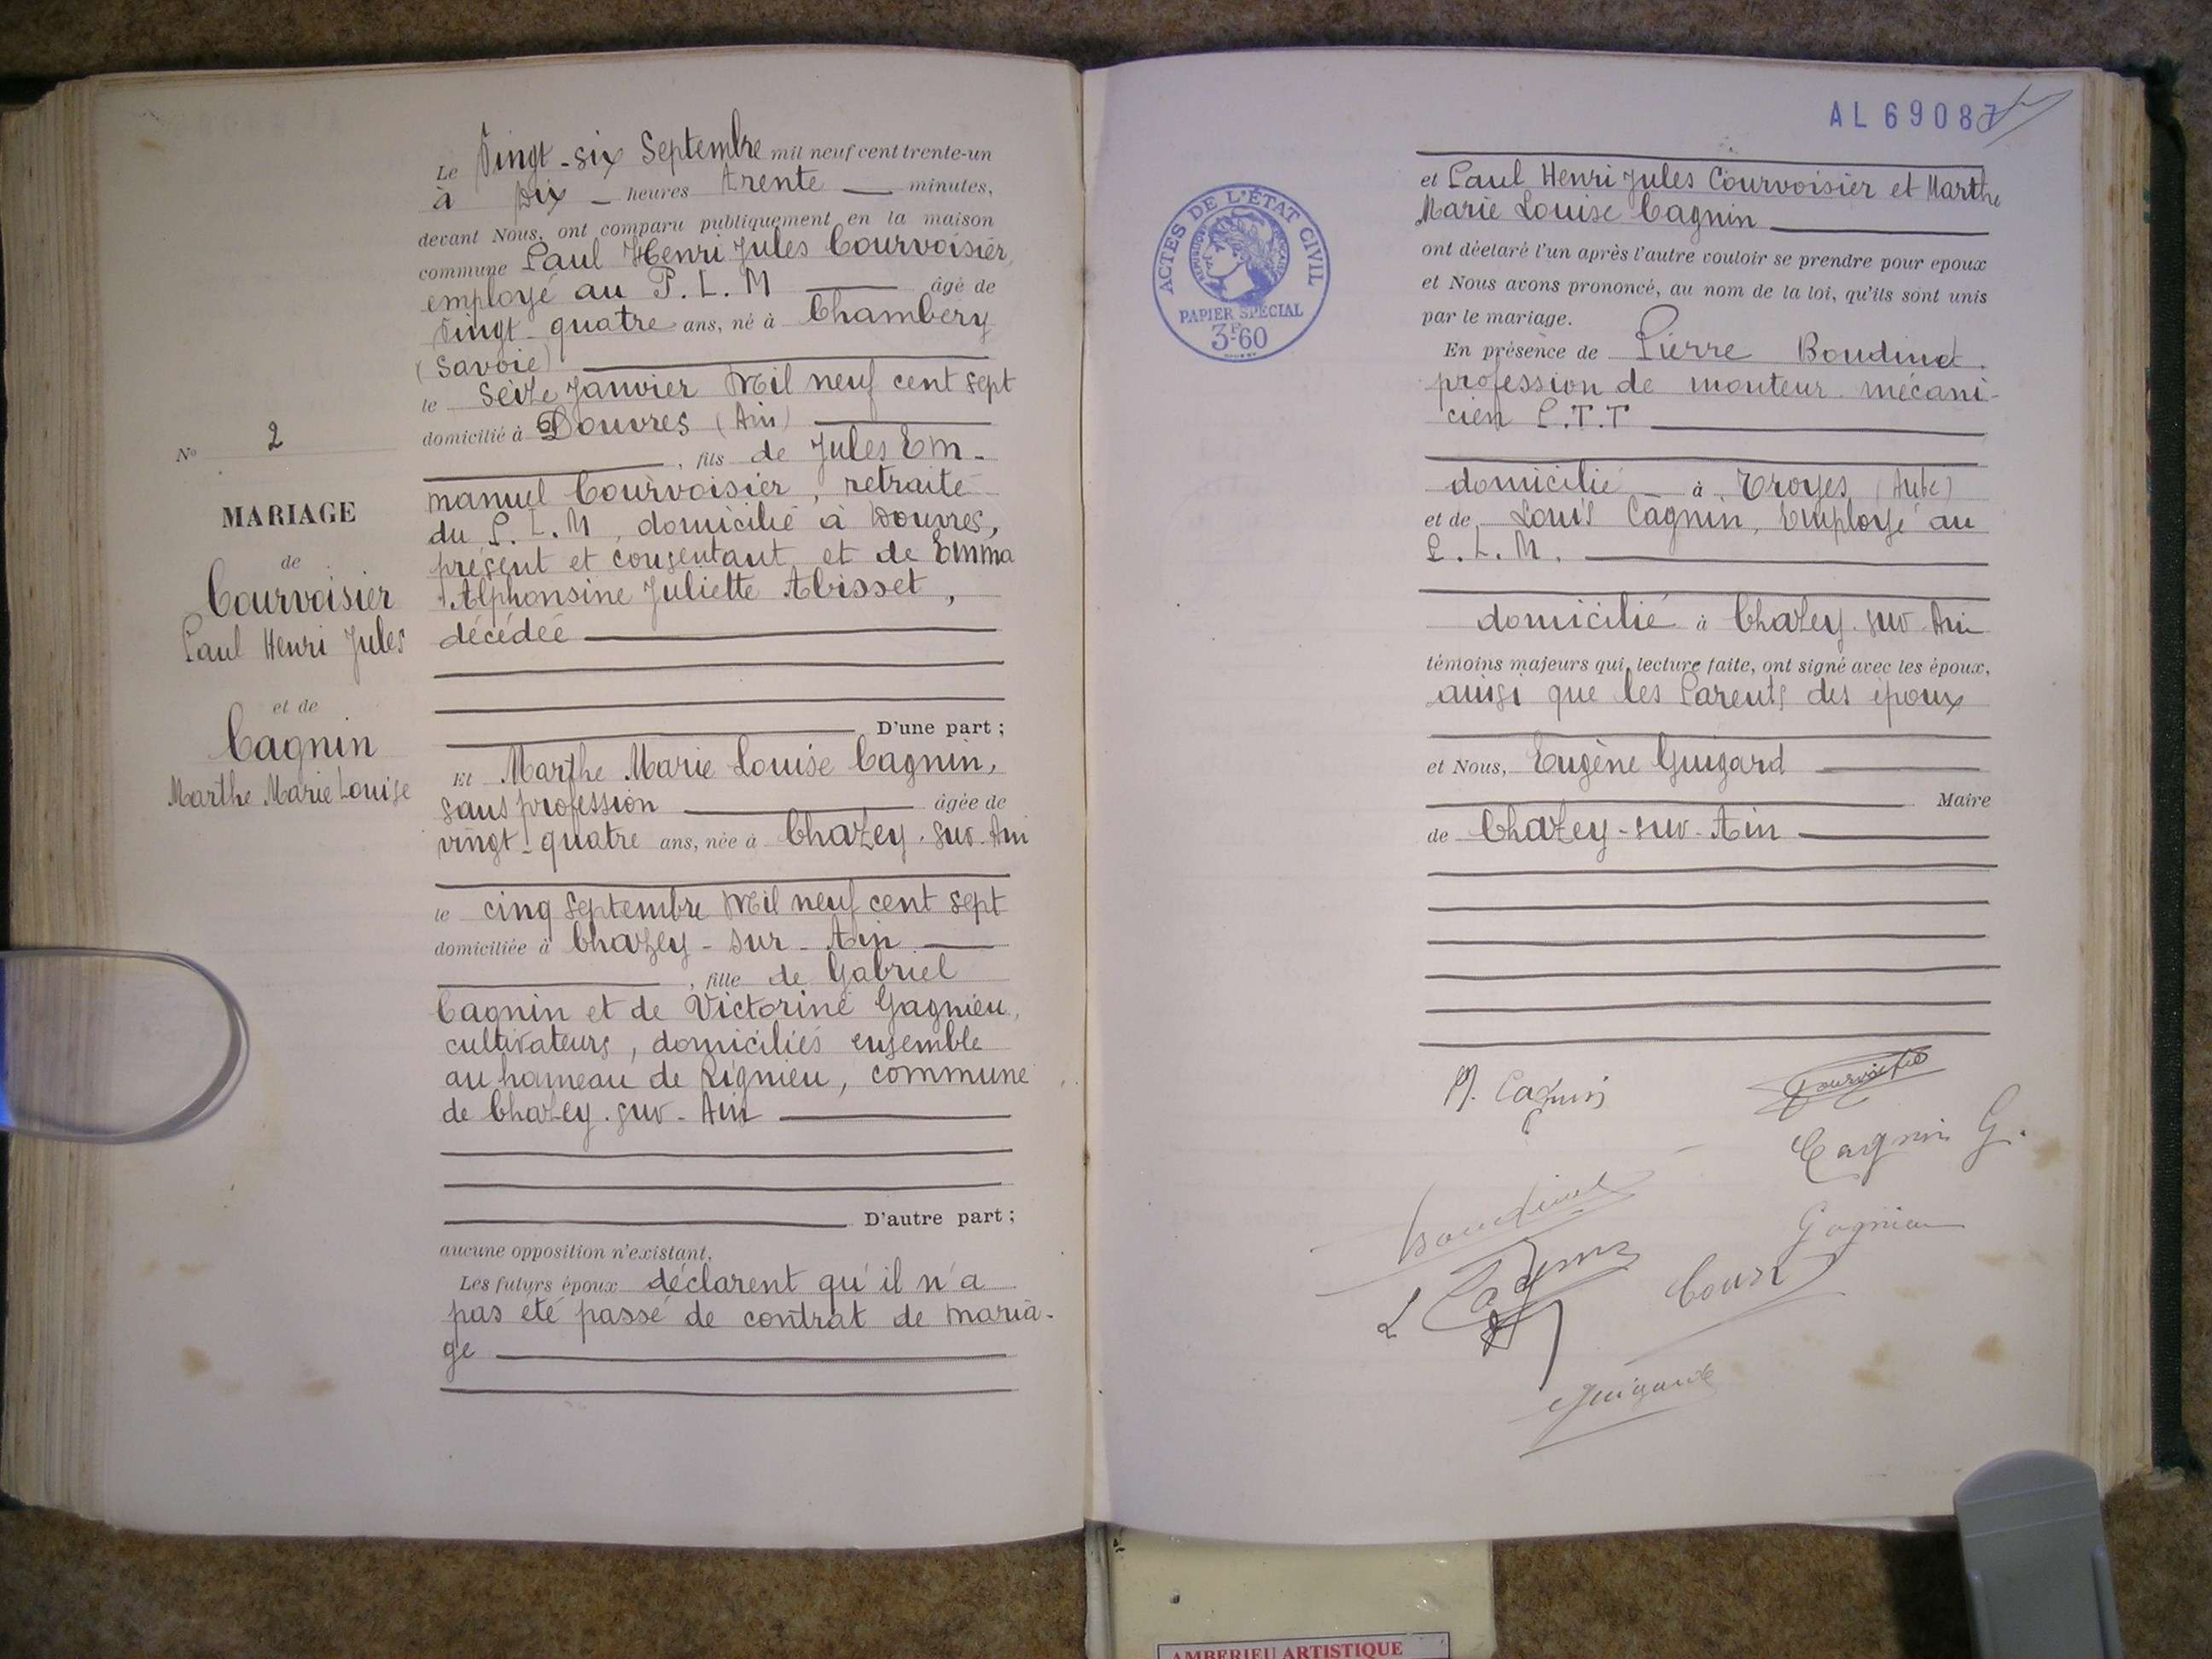 Le Vingt-six Septembre mil neuf cent trente-un
à Dix heures trente minutes,
devant Nous, ont comparu publiquement en la maison
commune Paul Henri Jules Courvoisier,
employé au P.L.M âgé de
Vingt-quatre ans, né à Chambéry
(Savoie)
le Seize Janvier Mil neuf cent sept
domicilié à Douvres (Ain)
, fils de Jules Em-
manuel Courvoisier, retraité
du P.L.M, domicilié à Douvres,
présent et consentant et de Emma
Alphonsine Juliette Abisset,
décédée
D'une part;
Et Marthe Marie Louise Cagnin,
sans profession âgée de
vingt-quatre ans, née à Chazey-sur-Ain
le cinq Septembre Mil neuf cent sept
domiciliée à Chazey-sur-Ain
, fille de Gabriel
Cagnin et de Victorine Gagnieu,
cultivateurs, domiciliés ensemble
au hameau de Rignieu, commune
de Chazey-sur-Ain
D'autre part;
aucune opposition n'existant,
Les futurs époux déclarent qu'il n'a
pas été passé de contrat de maria-
ge
N° 2
MARIAGE
de
Courvoisier
Paul Henri Jules
et de
Cagnin
Marthe Marie Louise
AL 69087
ACTES DE L'ÉTAT CIVIL
RÉPUBLIQUE FRANÇAISE
PAPIER SPÉCIAL
3F60
et Paul Henri Jules Courvoisier et Marthe
Marie Louise Cagnin
ont déclaré l'un après l'autre vouloir se prendre pour epoux
et Nous avons prononcé, au nom de la loi, qu'ils sont unis
par le mariage.
En présence de Pierre Boudinet
profession de monteur mécani-
cien P.T.T
domicilié à Troyes (Aube)
et de Louis Cagnin, Employé au
P.L.M.
domicilié à Chazey-sur-Ain
témoins majeurs qui, lecture faite, ont signé avec les époux,
ainsi que les Parents des époux
et Nous, Eugène Guigard
Maire
de Chazey-sur-Ain
M. Cagnin
Cagnin G.
Gagnieu
L Cagnin
Guigard
AMBERIEU ARTISTIQUE